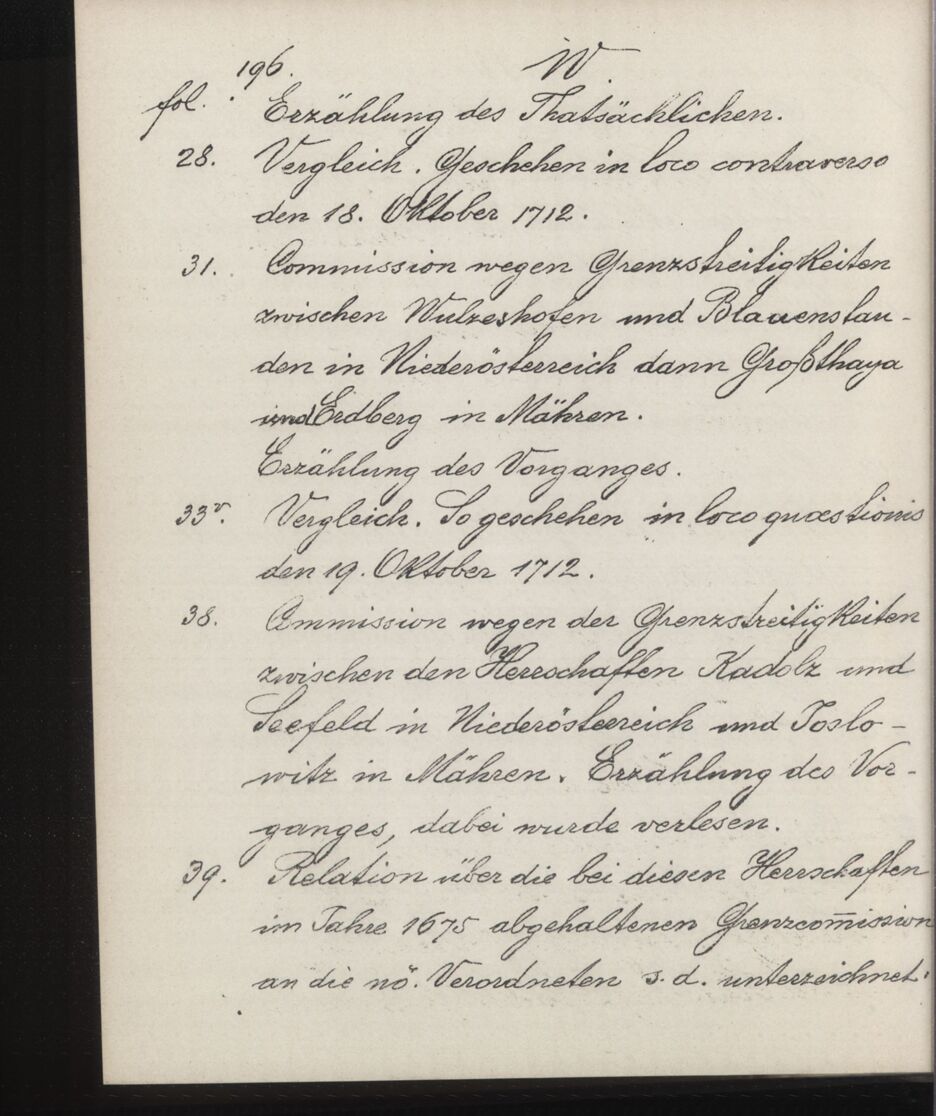 196. W.
fol. Erzählung des Thatsächlichen.
28. Vergleich. Geschehen in loco contraverso
den 18. Oktober 1712.
31. Commission wegen Grenzstreitigkeiten
zwischen Wulzeshofen und Blauenstau-
den in Niederösterreich dann Großthaya
und Erdberg in Mähren.
Erzählung des Vorganges.
33v. Vergleich. So geschehen in loco quaestionis
den 19. Oktober 1712.
38. Commission wegen der Grenzstreitigkeiten
zwischen den Herrschaften Kadolz und
Seefeld in Niederösterreich und Joslo-
witz in Mähren. Erzählung des Vor-
ganges, dabei wurde verlesen.
39. Relation über die bei diesen Herrschaften
im Jahre 1675 abgehaltenen Grenzcom̅ission
an die nö. Verordneten s. d. unterzeichnet: